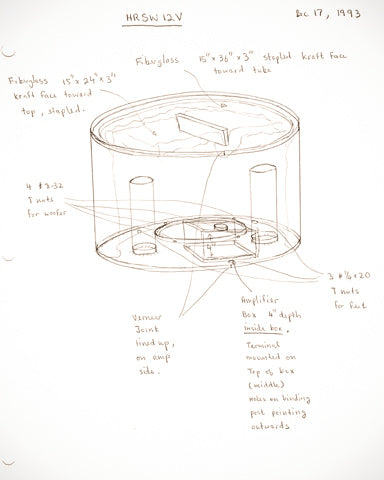 HRSW 12V
Dec 17, 1993
Fiberglass 15" x 36" x 3" stapled. kraft face
toward tube
Fiberglass 15" x 24" x 3"
kraft face toward
top, stapled.
4 # 8-32
T nuts
for woofer
3 #1/4 x 20
T nuts
for feet
Veneer
Joint
lined up,
on amp
side.
Amplifier
Box 4" depth
inside box.
Terminal
mounted on
Top of box
(middle)
Holes on binding
post pointing
outwards